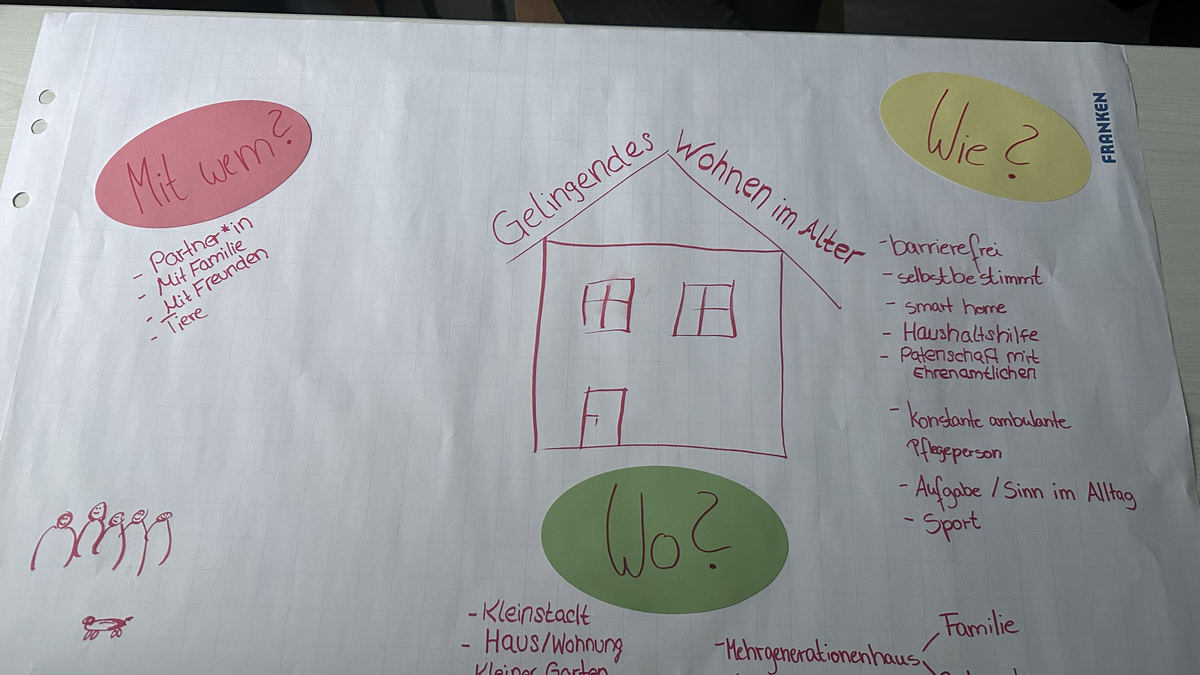 Mit wem?
- Partner*in
- Mit Familie
- Mit Freunden
- Tiere
Gelingendes Wohnen im Alter
Wie?
FRANKEN
- barrierefrei
- selbstbestimmt
- smart home
- Haushaltshilfe
- Patenschaft mit
Ehrenamtlichen
- Konstante ambulante
Pflegeperson
- Aufgabe / Sinn im Alltag
- Sport
Wo?
- Kleinstadt
- Haus/Wohnung
Kleiner Garten
- Mehrgenerationenhaus
Familie